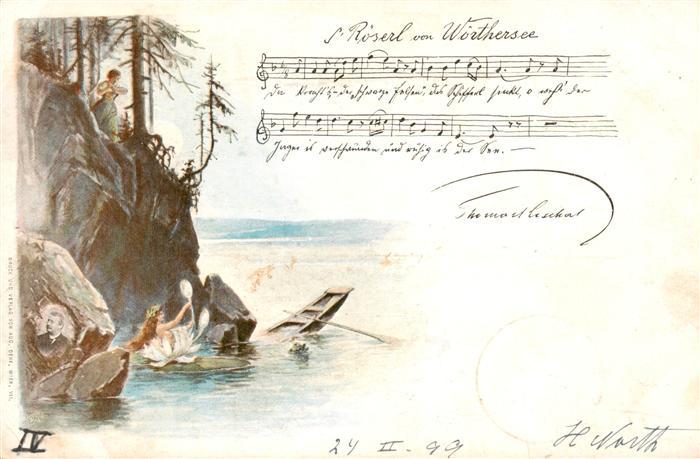 s' Röserl von Wörthersee
Da kracht's, der schwarze Felsen, das Schifferl sinkt, o weh! der
Jager is verschwunden und ruhig is der See. —
Thomas Koschat
DRUCK UND VERLAG VON AUG. DENK, WIEN, VII.
IV
24 II - 99
H North